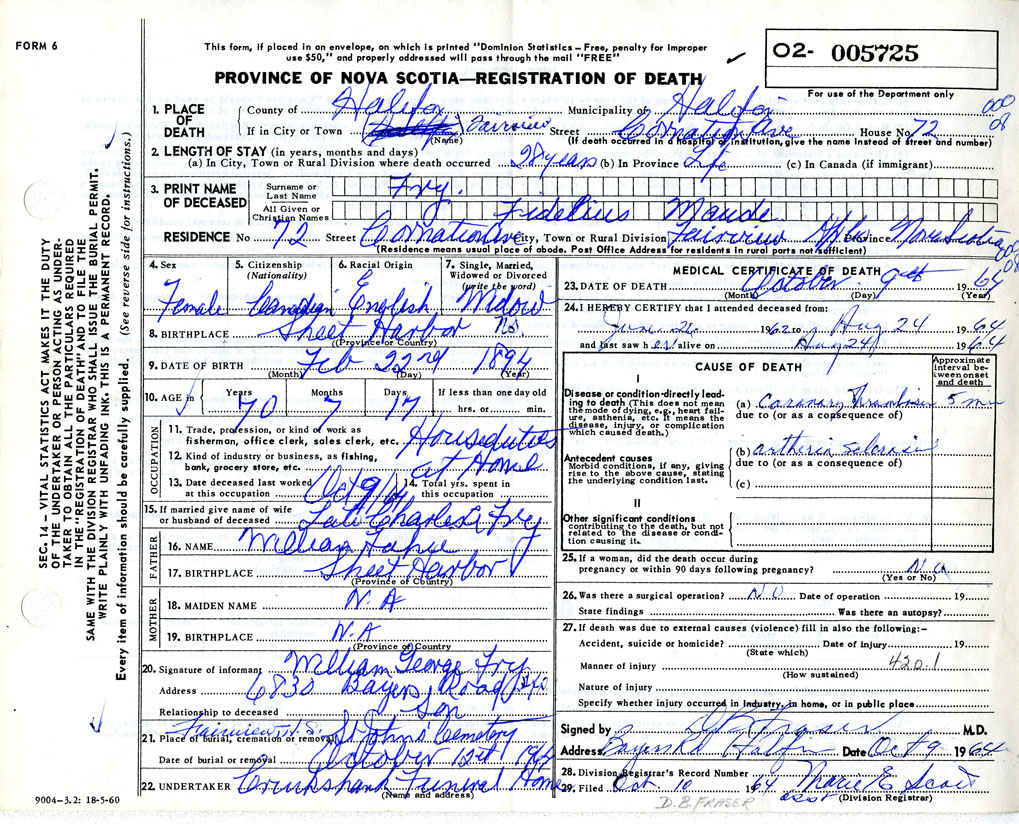 FORM 6
This form, if placed in an envelope, on which is printed "Dominion Statistics – Free, penalty for improper
use $50," and properly addressed will pass through the mail "FREE"
O2- 005725
For use of the Department only
PROVINCE OF NOVA SCOTIA—REGISTRATION OF DEATH
000
08
1. PLACE OF DEATH
County of Halifax Municipality of Halifax
If in City or Town Fairview Street Coronation Ave House No. 72
(Name) (If death occurred in a hospital or institution, give the name instead of street and number)
2. LENGTH OF STAY (in years, months and days)
(a) In City, Town or Rural Division where death occurred 28 years (b) In Province Life (c) In Canada (if immigrant)
3. PRINT NAME OF DECEASED
Surname or Last Name Fry.
All Given or Christian Names Fidelius Maude
RESIDENCE No 72 Street Coronation Ave City, Town or Rural Division Fairview Hfx Province Nova Scotia
(Residence means usual place of abode. Post Office Address for residents in rural parts not sufficient)
000
08
4. Sex Female
5. Citizenship (Nationality) Canadian
6. Racial Origin English
7. Single, Married, Widowed or Divorced (write the word) Widow
8. BIRTHPLACE Sheet Harbor N.S.
(Province or Country)
9. DATE OF BIRTH Feb 22nd 1894
(Month) (Day) (Year)
10. AGE in Years 70 Months 7 Days 17 If less than one day old hrs. or min.
OCCUPATION
11. Trade, profession, or kind of work as fisherman, office clerk, sales clerk, etc. Houseduties
12. Kind of industry or business, as fishing, bank, grocery store, etc. at Home
13. Date deceased last worked at this occupation Oct 9/64 14. Total yrs. spent in this occupation
15. If married give name of wife or husband of deceased Late Charles A Fry
FATHER
16. NAME William Fahie
17. BIRTHPLACE Sheet Harbor
(Province or Country)
MOTHER
18. MAIDEN NAME N.A
19. BIRTHPLACE N.A
(Province of Country)
20. Signature of informant William George Fry
Address 6830 Bayers Road Hfx
Relationship to deceased Son
Fairview N.S.
21. Place of burial, cremation or removal St Johns Cemetery
Date of burial or removal October 12th 1964
22. UNDERTAKER Cruikshank Funeral Home
(Name and address)
MEDICAL CERTIFICATE OF DEATH
23. DATE OF DEATH October 9th 1964
(Month) (Day) (Year)
24. I HEREBY CERTIFY that I attended deceased from:
June 26 1962 to Aug 24 1964
and last saw her alive on Aug 24 1964
CAUSE OF DEATH
Approximate interval between onset and death
I
Disease or condition directly leading to death (This does not mean the mode of dying, e.g., heart failure, asthenia, etc. It means the disease, injury, or complication which caused death.)
(a) Coronary Thrombosis 5 min
due to (or as a consequence of)
Antecedent causes
Morbid conditions, if any, giving rise to the above cause, stating the underlying condition last.
(b) artherio sclerosis
due to (or as a consequence of)
(c)
II
Other significant conditions
contributing to the death, but not related to the disease or condition causing it.
25. If a woman, did the death occur during pregnancy or within 90 days following pregnancy?
(Yes or No)
26. Was there a surgical operation? NO Date of operation 19
State findings Was there an autopsy?
27. If death was due to external causes (violence) fill in also the following:–
Accident, suicide or homicide? Date of injury 19
(State which)
Manner of injury 420.1
(How sustained)
Nature of injury
Specify whether injury occurred in Industry, in home, or in public place
Signed by D B Fraser M.D.
Address Bayers Rd Halifax Date Oct 9 1964
28. Division Registrar's Record Number
29. Filed Oct. 10 1964 Marie E
asst (Division Registrar)
D.B. FRASER
9004-3.2: 18-5-60
SEC. 14 – VITAL STATISTICS ACT MAKES IT THE DUTY
OF THE UNDERTAKER OR PERSON ACTING AS UNDER-
TAKER TO OBTAIN ALL THE PARTICULARS REQUIRED
IN THE "REGISTRATION OF DEATH" AND TO FILE THE
SAME WITH THE DIVISION REGISTRAR WHO SHALL ISSUE THE BURIAL PERMIT.
WRITE PLAINLY WITH UNFADING INK. THIS IS A PERMANENT RECORD.
Every item of information should be carefully supplied. (See reverse side for instructions.)